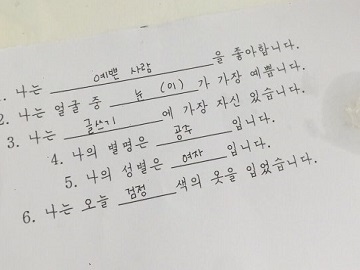 1. 나는 예쁜 사람 을 좋아합니다.
2. 나는 얼굴 중 눈 (이) 가 가장 예쁩니다.
3. 나는 글쓰기 에 가장 자신 있습니다.
4. 나의 별명은 공주 입니다.
5. 나의 성별은 여자 입니다.
6. 나는 오늘 검정 색의 옷을 입었습니다.